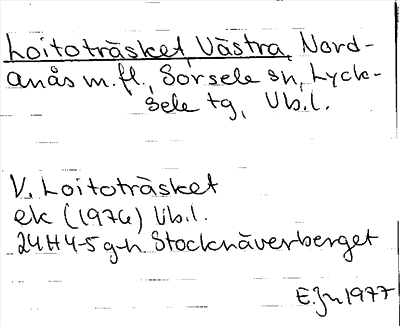 Loitoträsket, Västra, Nord-
anås m.fl., Sorsele sn, Lyck-
sele tg, Vb.l.
V. Loitoträsket
ek (1976) Vb.l.
24H4-5g-h Stocknäverberget
E.Jn 1977